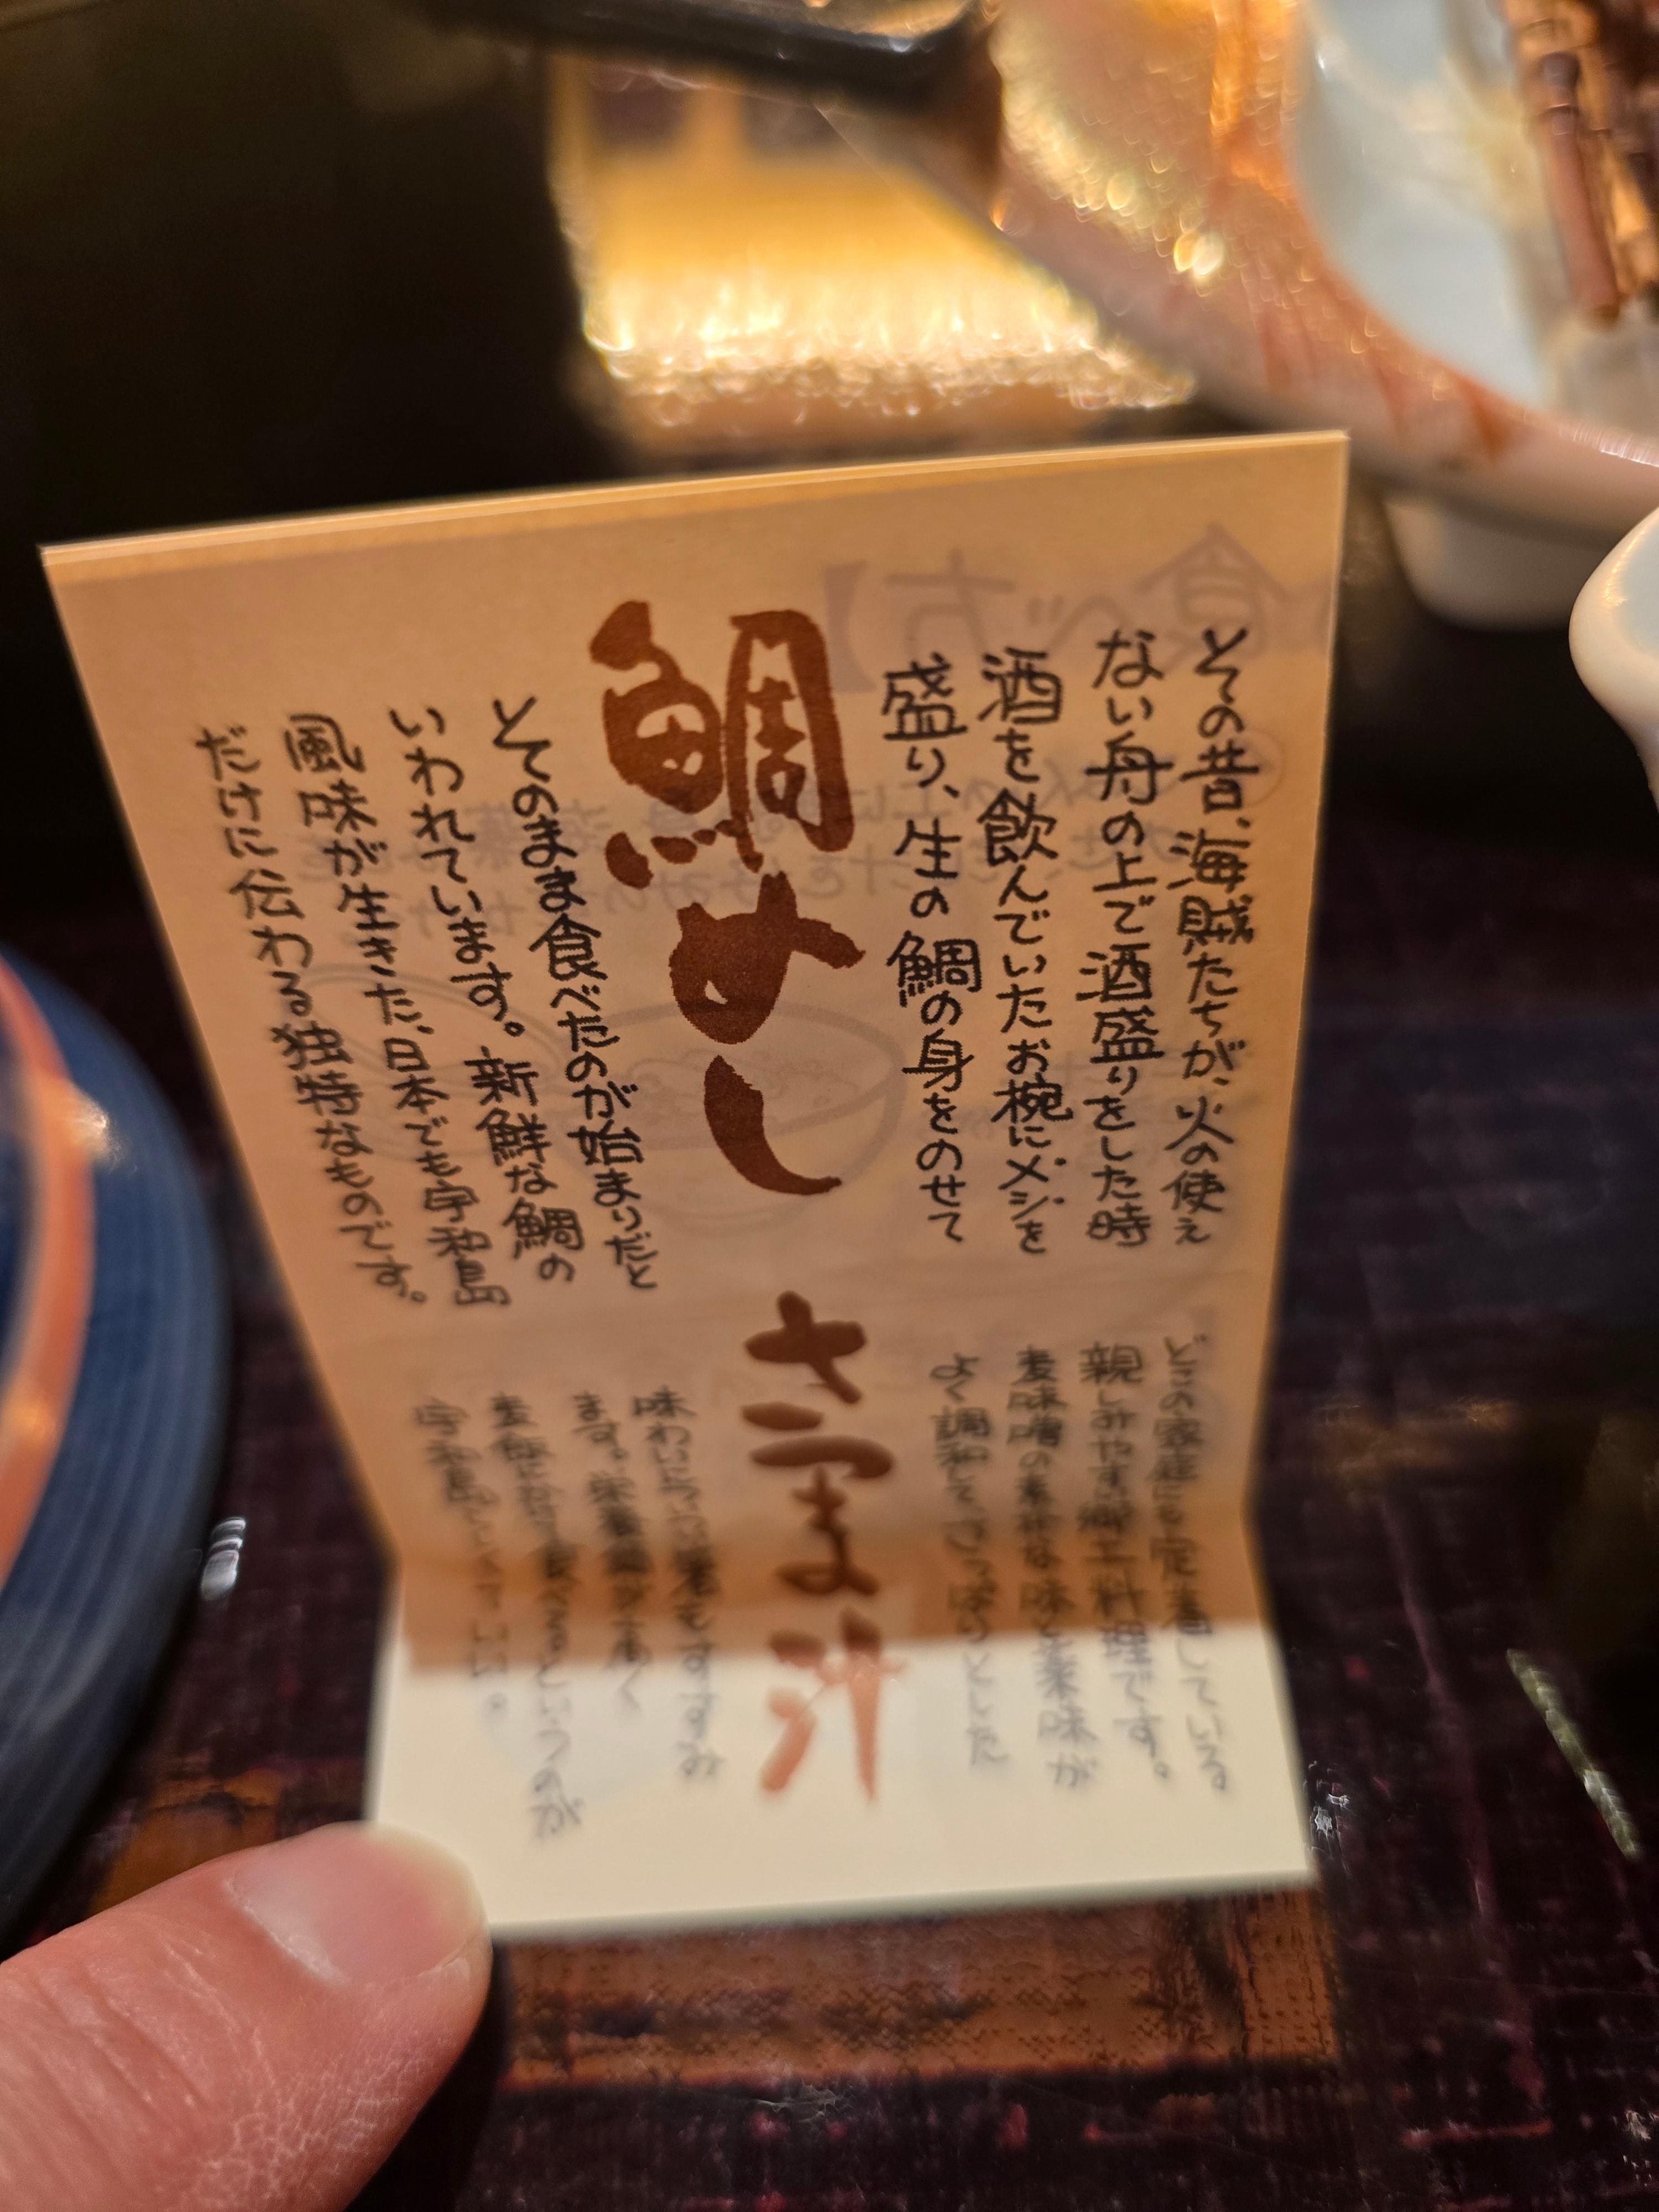 その昔、海賊たちが、火の使え
ない舟の上で酒盛りをした時
酒を飲んでいたお椀にメシを
盛り、生の鯛の身をのせて
鯛めし
そのまま食べたのが始まりだと
いわれています。新鮮な鯛の
風味が生きた、日本でも宇和島
だけに伝わる独特なものです。
どこの家庭にも定着している
親しみやすい郷土料理です。
麦味噌の素朴な味と薬味が
よく調和してさっぱりとした
さつま汁
味わいについ箸もすすみ
ます。栄養価が高く
麦飯にかけて食べるというのが
宇和島